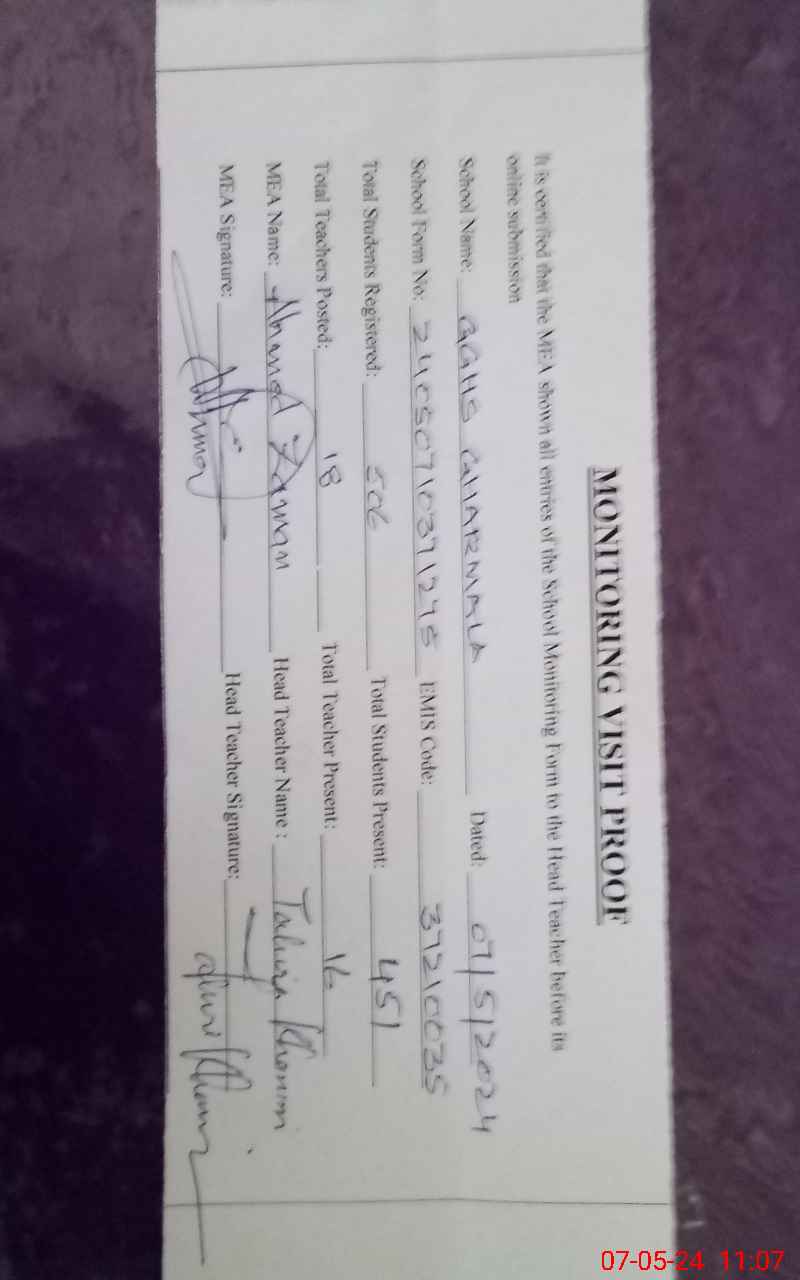 MONITORING VISIT PROOF
It is certified that the MEA shown all entries of the School Monitoring Form to the Head Teacher before its
online submission
School Name: GGHS GHARMALA Dated: 07/5/2024
School Form No: 24050710371295 EMIS Code: 37210035
Total Students Registered: 506 Total Students Present: 451
Total Teachers Posted: 18 Total Teacher Present: 16
MEA Name: Ahamed Zaman Head Teacher Name :
MEA Signature: Head Teacher Signature:
07-05-24 11:07